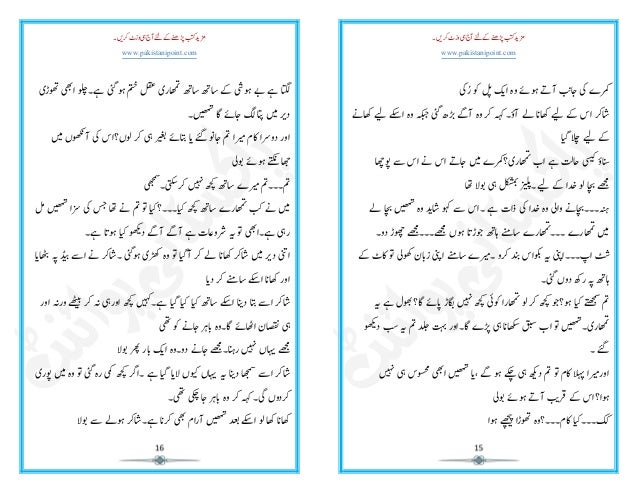 مزید کتب پڑھنے کے لئے آج ہی وزٹ کریں۔
www.pakistanipoint.com
کمرے کی جانب آتے ہوئے وہ ایک پل کو رُکی
شاکر اس کے لیے کھانا لے آؤ۔ کہہ کر وہ آگے بڑھ گئی جبکہ وہ اسکے لیے کھانے
کے لیے چلا گیا
سناؤ کیسی حالت ہے اب تمھاری؟ کمرے میں جاتے اس نے اس سے پوچھا
مجھے بچا لو خدا کے لیے۔ پلیز بمشکل ہی بولا تھا
ہنہ۔۔۔ بچانے والی وہ خدا کی ذات ہے۔ اس سے کہو شاید وہ تمھیں بچا لے
میں تمھارے ۔۔۔ تمھارے سامنے ہاتھ جوڑتا ہوں مجھے ۔۔۔ مجھے چھوڑ دو۔
شٹ اپ۔۔۔ اپنی یہ بکواس بند کرو۔ میرے سامنے اپنی زبان کھولی تو کاٹ کے
ہاتھ پہ رکھ دوں گی۔
تم سمجھتے کیا ہو؟ جو کچھ کر لو تمھارا کوئی کچھ نہیں بگاڑ پائے گا؟ بھول ہے یہ
تمھاری۔ تمھیں تو اب سبق سکھانا ہی پڑے گا۔ اور بہت جلد تم یہ سب دیکھو
گے۔
اور میرا پہلا کام تو تم دیکھ ہی چکے ہو گے، یا تمھیں ابھی محسوس ہی نہیں
ہوا؟ اس کے قریب آتے ہوئے بولی
کک۔۔۔ کیا کام۔۔۔؟ وہ تھوڑا پیچھے ہوا
15
مزید کتب پڑھنے کے لئے آج ہی وزٹ کریں۔
www.pakistanipoint.com
لگتا ہے بے ہوشی کے ساتھ ساتھ تمھاری عقل ختم ہو گئی ہے۔ چلو ابھی تھوڑی
دیر میں پتا لگ جائے گا تمھیں۔
اور دوسرا کام میرا تم جانو گے یا بتائے بغیر ہی کر لوں؟ اس کی آنکھوں میں
جھانکتے ہوئے بولی
تم۔۔۔ تم میرے ساتھ کچھ نہیں کر سکتی۔ سمجھی
میں نے کب تمھارے ساتھ کچھ کیا۔۔۔؟ کیا تو تم نے تھا جس کی سزا تمھیں مل
رہی ہے۔ ابھی تو یہ شروعات ہے آگے آگے دیکھو کیا ہوتا ہے۔
اتنی دیر میں شاکر کھانا لے کر آ گیا تو وہ کھڑی ہو گئی۔ شاکر نے اسے بیڈ پہ بٹھایا
اور کھانا اسکے سامنے کر دیا
شاکر اسے بتا دینا اسکے ساتھ کیا کیا گیا ہے۔ کہیں کچھ اور ہی نہ کر بیٹھے ورنہ اور
ہی نقصان اٹھائے گا۔ وہ باہر جانے کو تھی
مجھے یہاں نہیں رہنا۔ مجھے جانے دو۔ وہ ایک بار پھر بولا
شاکر اسے سمجھا دینا یہ یہاں کیوں لایا گیا ہے۔ اگر کچھ کمی رہ گئی تو وہ میں پوری
کر دوں گی۔ کہہ کر وہ باہر جا چکی تھی۔
کھانا کھا لو اسکے بعد تمھیں آرام بھی کرنا ہے۔ شاکر ہولے سے بولا
16